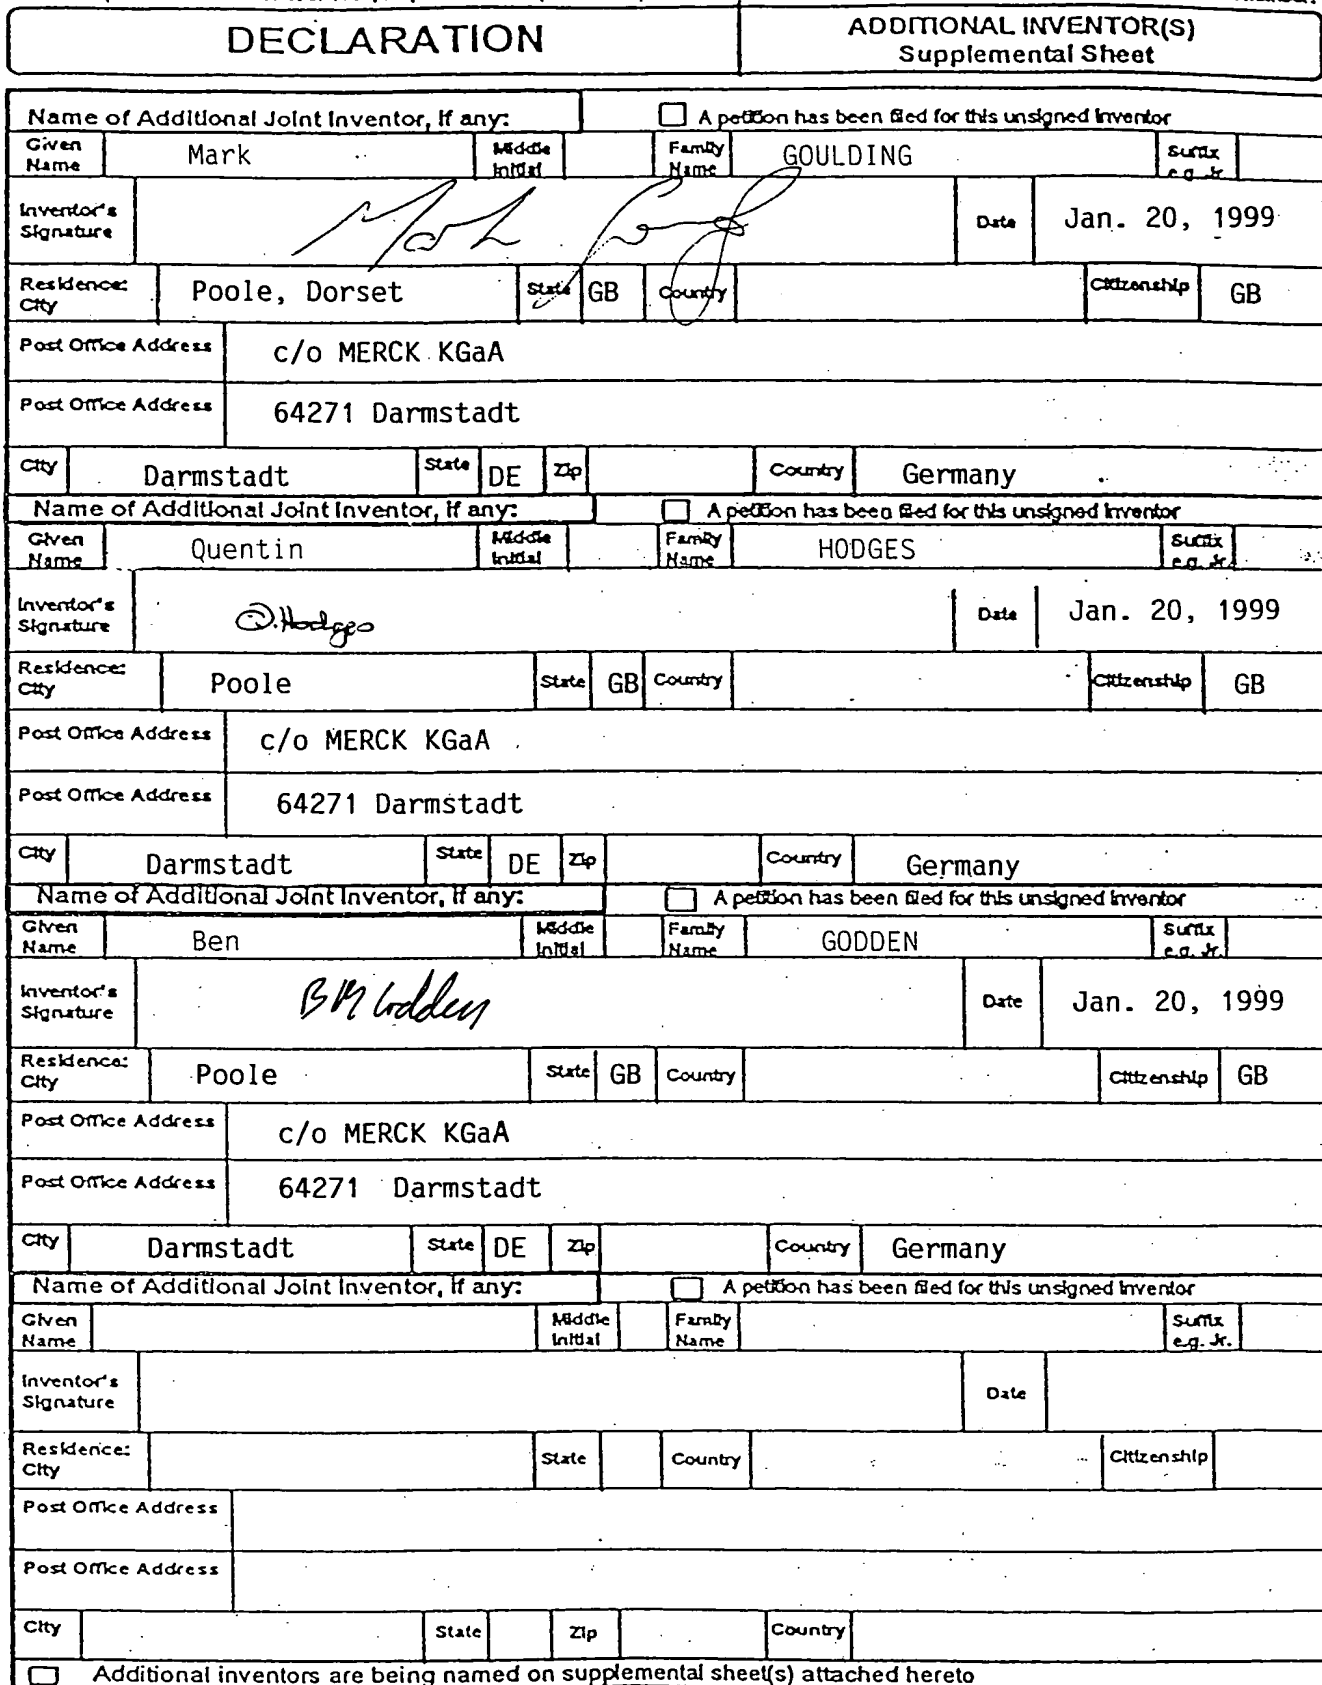 DECLARATION
ADDITIONAL INVENTOR(S)
Supplemental Sheet
Name of Additional Joint Inventor, if any:
A petition has been filed for this unsigned inventor
Given Name Mark Middle Initial Family Name GOULDING Suffix e.g. Jr.
Inventor's Signature Date Jan. 20, 1999
Residence: City Poole, Dorset State GB Country Citizenship GB
Post Office Address c/o MERCK KGaA
Post Office Address 64271 Darmstadt
City Darmstadt State DE Zip Country Germany
Name of Additional Joint Inventor, if any:
A petition has been filed for this unsigned inventor
Given Name Quentin Middle Initial Family Name HODGES Suffix e.g. Jr.
Inventor's Signature Q. Hodges Date Jan. 20, 1999
Residence: City Poole State GB Country Citizenship GB
Post Office Address c/o MERCK KGaA
Post Office Address 64271 Darmstadt
City Darmstadt State DE Zip Country Germany
Name of Additional Joint Inventor, if any:
A petition has been filed for this unsigned inventor
Given Name Ben Middle Initial Family Name GODDEN Suffix e.g. Jr.
Inventor's Signature BM Godden Date Jan. 20, 1999
Residence: City Poole State GB Country Citizenship GB
Post Office Address c/o MERCK KGaA
Post Office Address 64271 Darmstadt
City Darmstadt State DE Zip Country Germany
Name of Additional Joint Inventor, if any:
A petition has been filed for this unsigned inventor
Given Name Middle Initial Family Name Suffix e.g. Jr.
Inventor's Signature Date
Residence: City State Country Citizenship
Post Office Address
Post Office Address
City State Zip Country
Additional inventors are being named on supplemental sheet(s) attached hereto